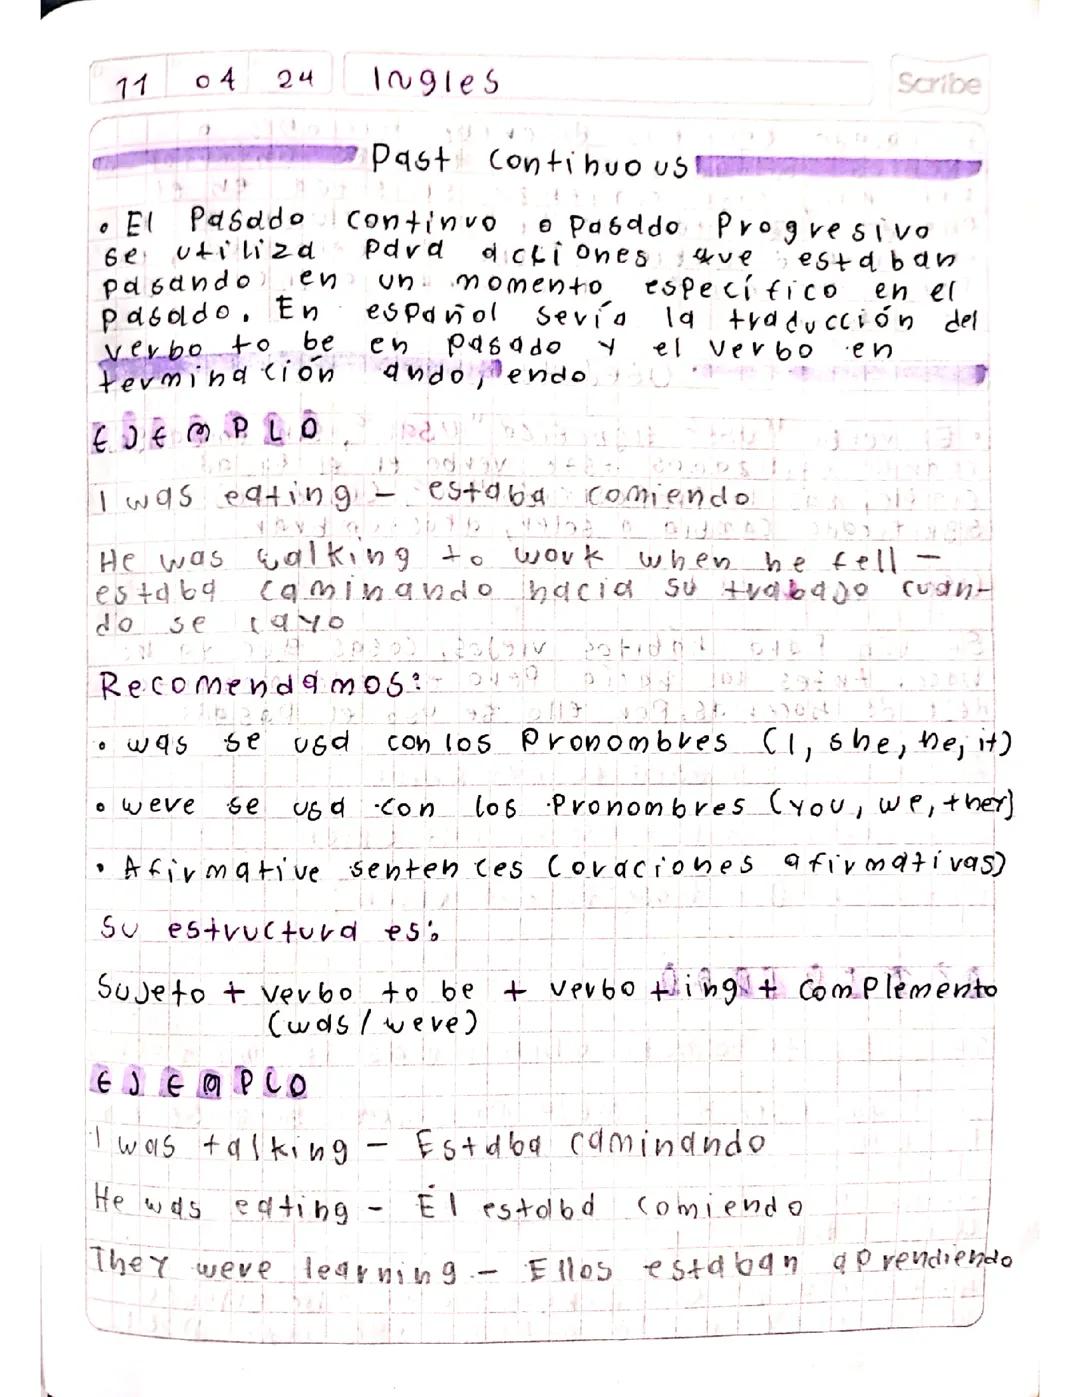 11 04 24 Ingles Scribe
Past Continuous
• El Pasado continuo o pasado Progresivo
se utiliza para acciones que estaban
pasando en un momento específico en el
pasado. En español sería la traducción del
verbo to be en pasado y el verbo en
terminación ando, endo
EJEMPLO
I was eating - estaba comiendo
He was walking to work when he fell -
estaba caminando hacia su trabajo cuan-
do se cayo
Recomendamos:
• was se usa con los Pronombres (I, she, he, it)
• were se usa con los Pronombres (you, we, they)
• Afirmative sentences (oraciones afirmativas)
Su estructura es:
Sujeto + verbo to be + verbo + ing + complemento
(was / were)
EJEMPLO
I was talking - Estaba caminando
He was eating - Él estaba comiendo
They were learning - Ellos estaban aprendiendo